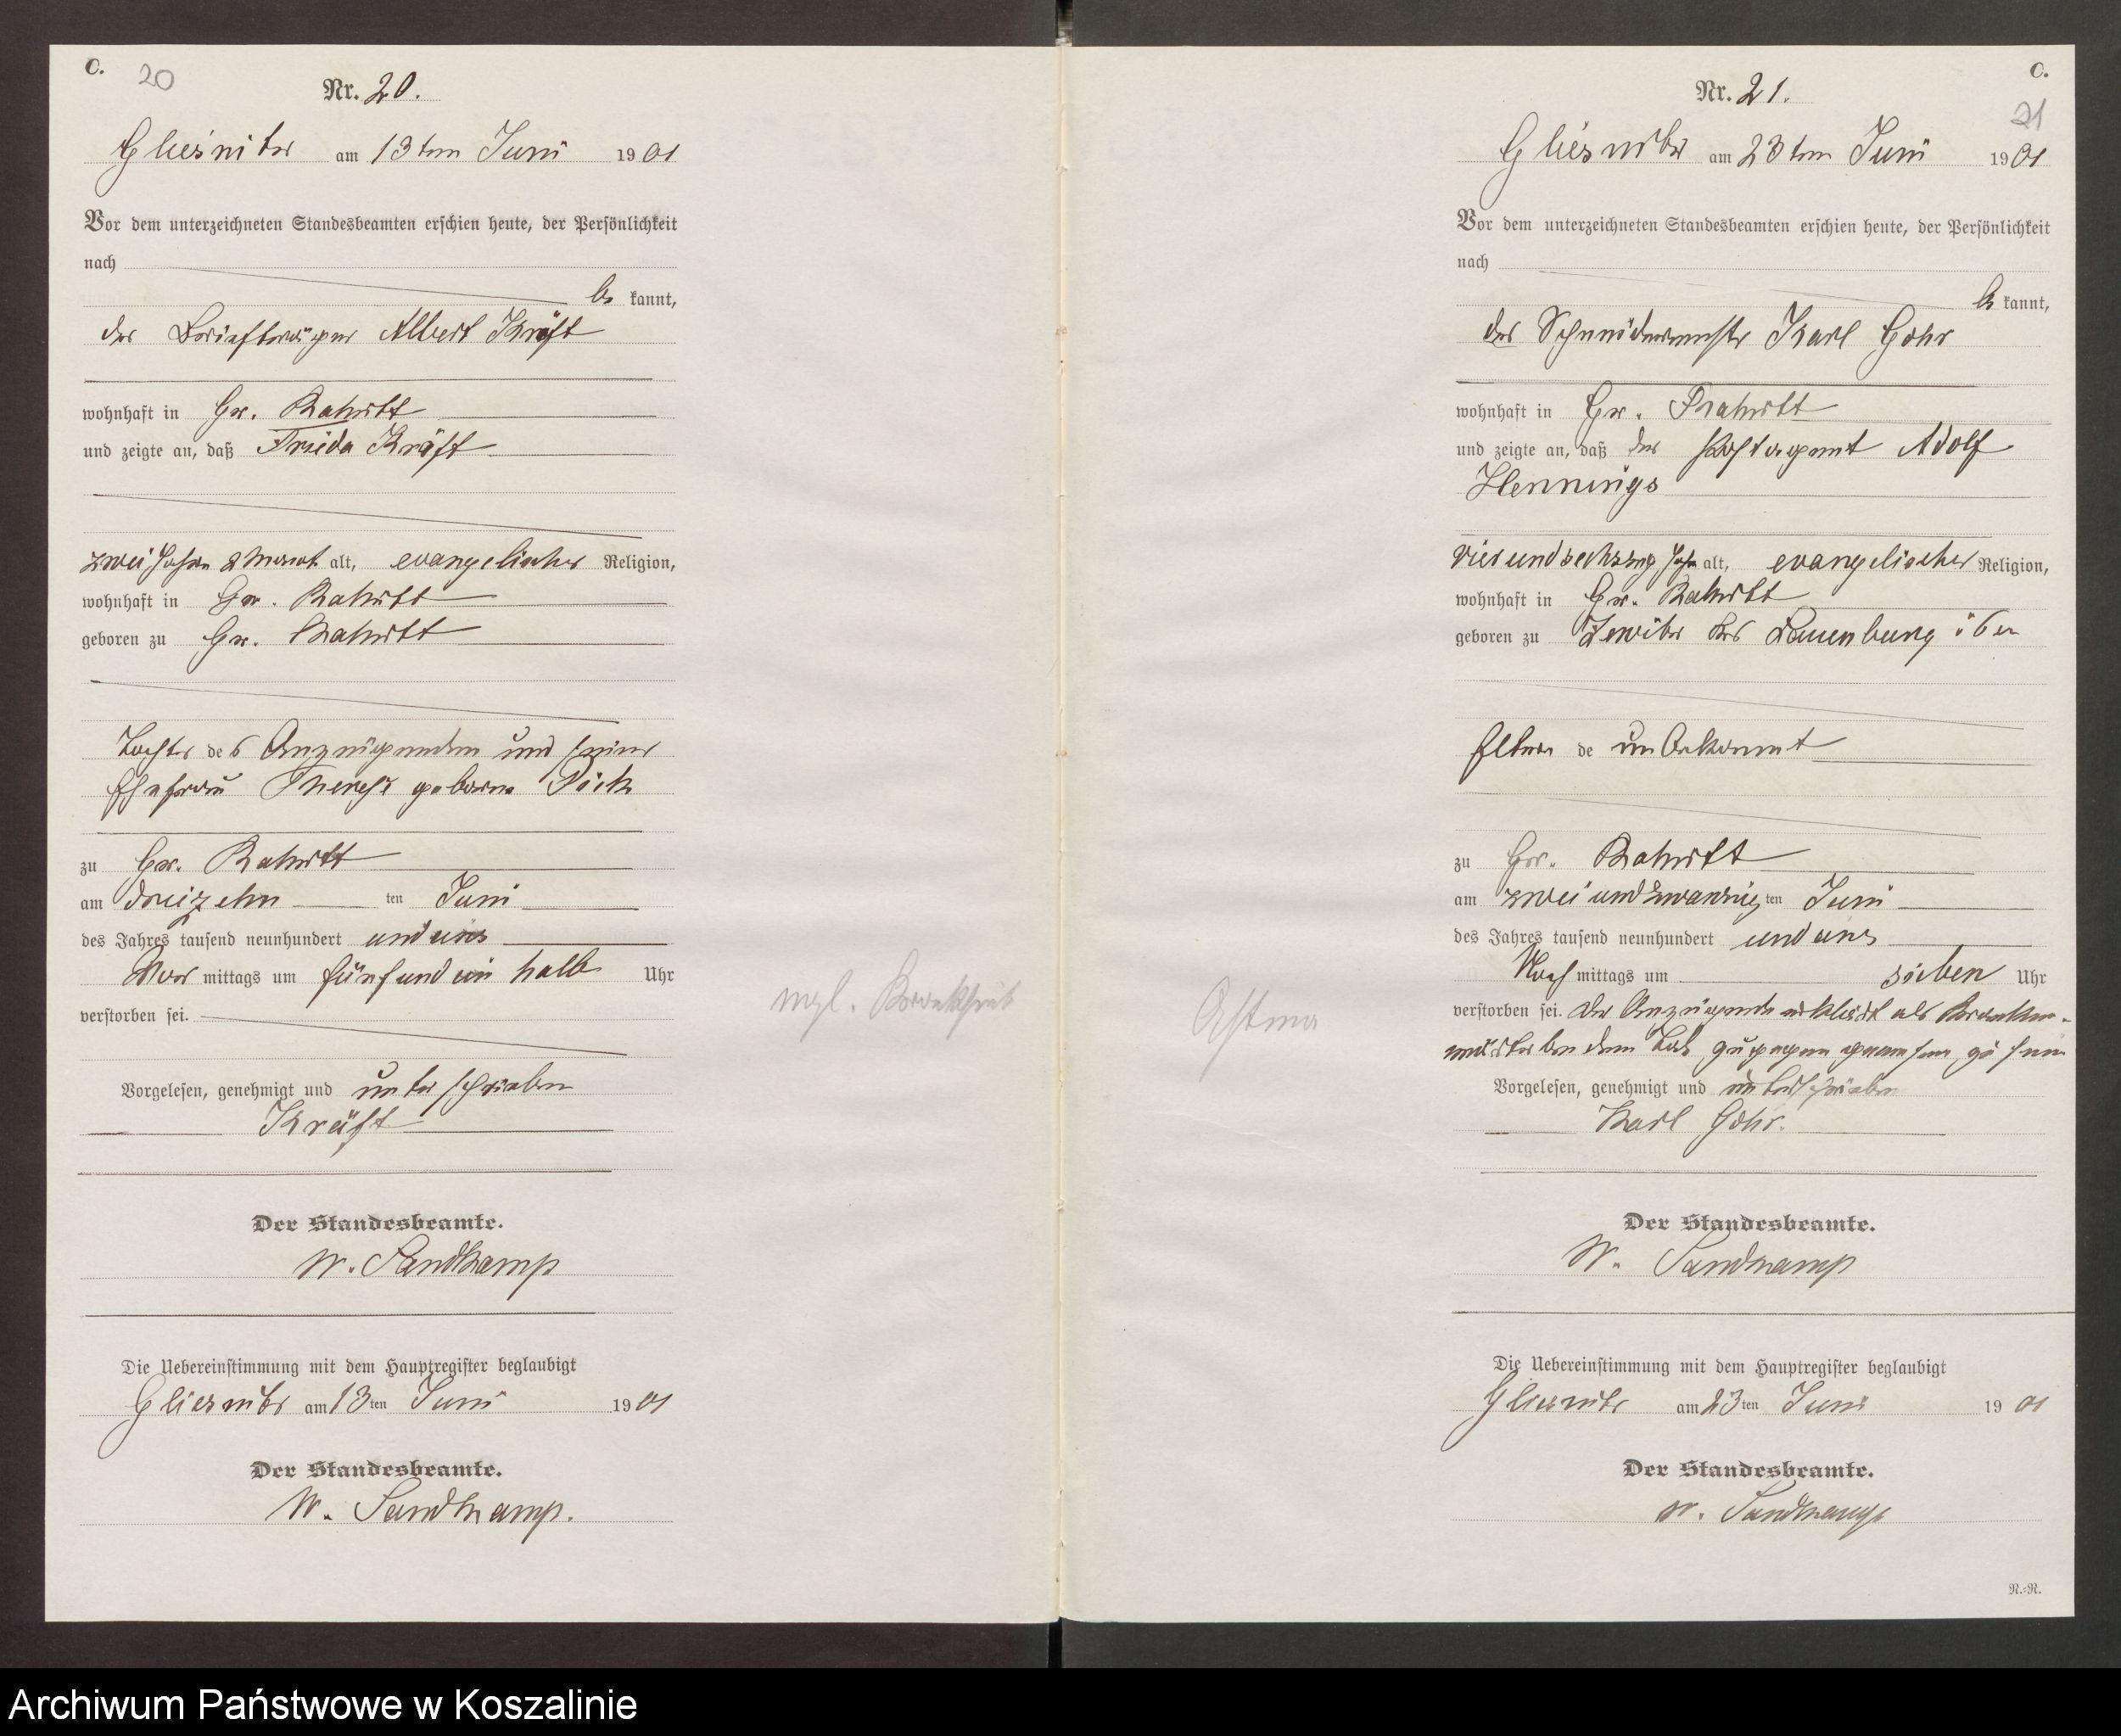 C.
20
Nr. 20.
Gliesnitz am 13ten Juni 1901
Vor dem unterzeichneten Standesbeamten erschien heute, der Persönlichkeit
nach
be kannt,
der Briefträger Albert Kräft
wohnhaft in Gr. Rakitt
und zeigte an, daß Frieda Kräft
zwei Jahre 2 Monat alt, evangelischer Religion,
wohnhaft in Gr. Rakitt
geboren zu Gr. Rakitt
Tochter des Anzeigenden und seiner
Ehefrau Therese geborne
zu Gr. Rakitt
am dreizehn ten Juni
des Jahres tausend neunhundert und eins
Vor mittags um fünf und ein halb Uhr
verstorben sei.
Vorgelesen, genehmigt und unterschrieben
Kräft
Der Standesbeamte.
W. Sandkamp
Die Uebereinstimmung mit dem Hauptregister beglaubigt
Gliesnitz am 13ten Juni 1901
Der Standesbeamte.
W. Sandkamp.
C.
21
Nr. 21.
Gliesnitz am 23ten Juni 1901
Vor dem unterzeichneten Standesbeamten erschien heute, der Persönlichkeit
nach
be kannt,
der Schneidermeister Karl Gohr
wohnhaft in Gr. Rakitt
und zeigte an, daß der Postagent Adolf
Hennings
vier und sechszig Jahr alt, evangelischer Religion,
wohnhaft in Gr. Rakitt
geboren zu Lauenburg
Eltern de unbekannt
zu Gr. Rakitt
am zwei und zwanzig ten Juni
des Jahres tausend neunhundert und eins
Nach mittags um sieben Uhr
verstorben sei. Der Anzeigende erklärt als Kranken-
wärter bei dem Tod zugegen gewesen zu sein
Vorgelesen, genehmigt und unterschrieben
Karl Gohr.
Der Standesbeamte.
W. Sandkamp
Die Uebereinstimmung mit dem Hauptregister beglaubigt
Gliesnitz am 23ten Juni 1901
Der Standesbeamte.
W. Sandkamp
Astma
N.=R.
Archiwum Państwowe w Koszalinie